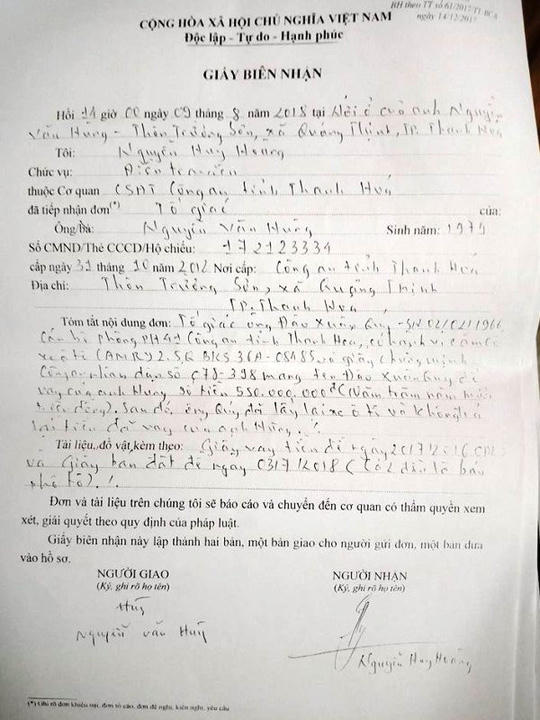 BH theo TT số 61/2017/TT-BCA
ngày 14/12/2017
CỘNG HÒA XÃ HỘI CHỦ NGHĨA VIỆT NAM
Độc lập - Tự do - Hạnh phúc
GIẤY BIÊN NHẬN
Hồi 14 giờ 00 ngày 09 tháng 8 năm 2018 tại chỗ ở của anh Nguyễn
Văn Hùng - Thôn Trường Sơn, xã Quảng Thịnh, TP. Thanh Hóa
Tôi: Nguyễn Huy Hoàng
Chức vụ: Điều tra viên
thuộc Cơ quan CSĐT Công an tỉnh Thanh Hoá
đã tiếp nhận đơn(*) Tố giác của:
Ông/Bà: Nguyễn Văn Hùng Sinh năm: 1979
Số CMND/Thẻ CCCD/Hộ chiếu: 172123334
cấp ngày 31 tháng 10 năm 2012 Nơi cấp: Công an tỉnh Thanh Hoá
Địa chỉ: Thôn Trường Sơn, xã Quảng Thịnh
TP. Thanh Hoá
Tóm tắt nội dung đơn: Tố giác ông Đào Xuân Quy - SN 02/02/1966
Cán bộ phòng PH41 Công an tỉnh Thanh Hoá, có hành vi cầm cố
xe ô tô CAMRY 2.5Q BKS 36A - 08485 và giấy chứng minh
Công an nhân dân số 079-398 mang tên Đào Xuân Quy để
vay của anh Hùng số tiền 550.000.000đ (Năm trăm năm mươi
triệu đồng). Sau đó, ông Quy đã lấy lại xe ô tô và không trả
lại tiền đã vay của anh Hùng./.
Tài liệu, đồ vật kèm theo: Giấy vay tiền đề ngày
và Giấy bán đất đề ngày 03/7/2018 (Có
Đơn và tài liệu trên chúng tôi sẽ báo cáo và chuyển đến cơ quan có thẩm quyền xem
xét, giải quyết theo quy định của pháp luật.
Giấy biên nhận này lập thành hai bản, một bản giao cho người gửi đơn, một bản đưa
vào hồ sơ.
NGƯỜI GIAO NGƯỜI NHẬN
(Ký, ghi rõ họ tên) (Ký, ghi rõ họ tên)
Nguyễn Văn Hùng Nguyễn Huy Hoàng
(*) Ghi rõ đơn khiếu nại, đơn tố cáo, đơn đề nghị, kiến nghị, yêu cầu